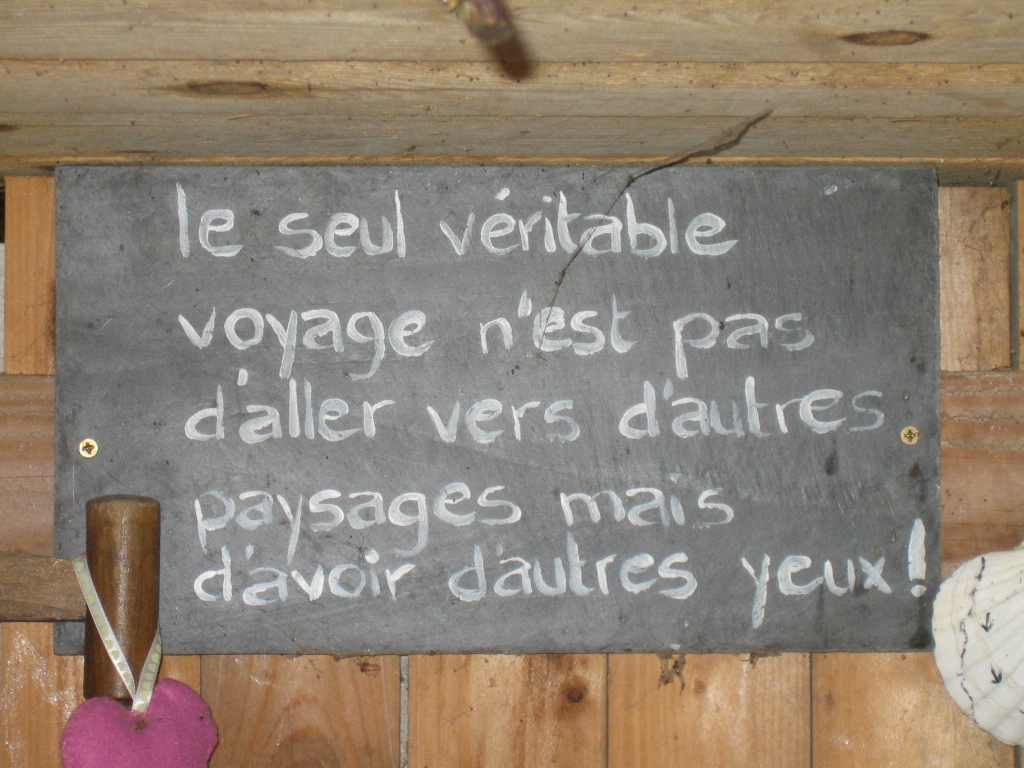 le seul véritable
voyage n'est pas
d'aller vers d'autres
paysages mais
d'avoir d'autres yeux!